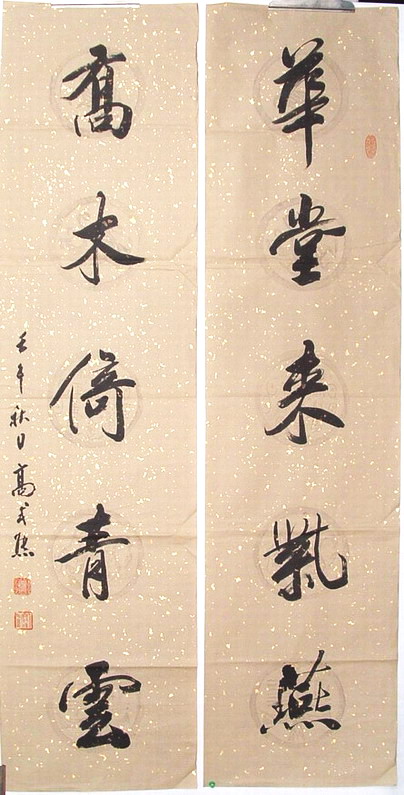 華堂來紫燕
喬木倚青雲
壬午秋日高式熊